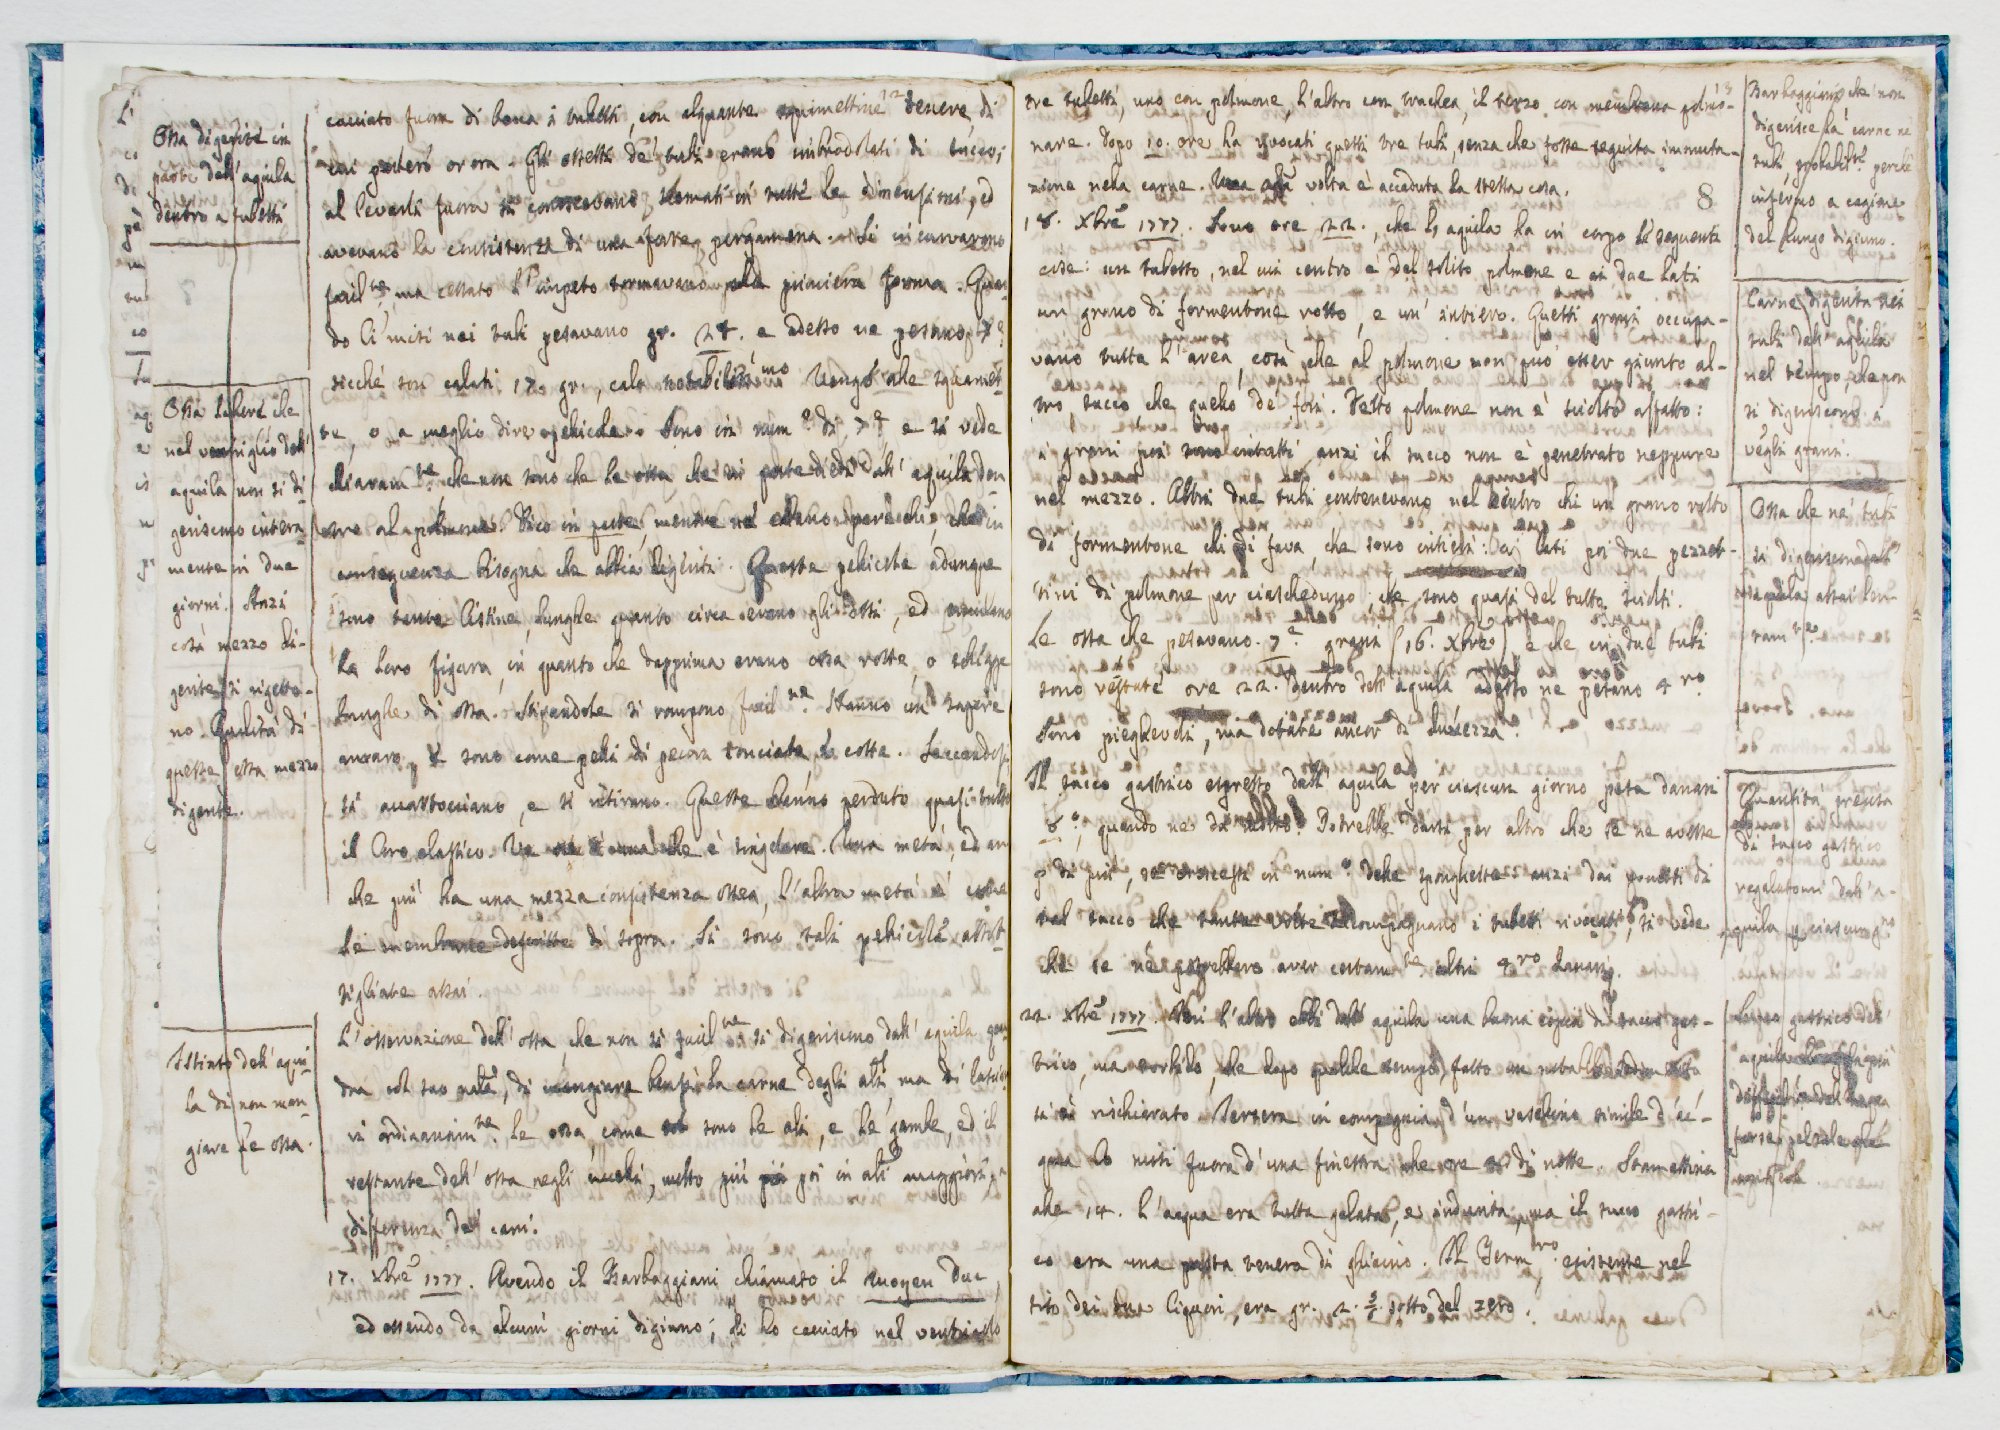 12
cacciato fuora di bocca i tubetti, con alquante squamettine tenere, di
cui parlerò or ora. Gli ossetti de' tubi erano imbrodolati di succo,
al levarli fuora si conoscevano scemati in tutte le dimensioni, ed
avevano la consistenza di una forte pergamena. Si incurvavano
facil.te, ma cessato l'impeto tornavano alla primiera forma. Quan-
do li misi nei tubi pesavano gr. 24. e adesso ne pesano 7.e
sicché son calati 17. gr., calo notabilissimo. Vengo alle squamet-
te, o a meglio dire pellicole. Sono in num.o di 7.e e si vede
chiaram.te che non sono che le ossa che in parte diedi all' aquila den-
tro al polmone. Dico in parte, mentre ne erano parecchi, che in
conseguenza bisogna che abbia digeriti. Queste pellicole adunque
sono tante listine, lunghe quanto circa erano gli ossi, ed
la loro figura, in quanto che dapprima erano ossa rotte, o schegge
lunghe di ossa. Stirandole si rompono facil.te. Hanno un sapore
amaro, e sono come pelli di pecora conciate e cotte. Seccandosi
si accartocciano, e si ritirano. Queste hanno perduto quasi tutto
il loro elastico. Ve ne è una che è singolare. Una metà, ed an-
che più ha una mezza consistenza ossea, l'altra metà è come
le membrane descritte di sopra. Sì sono tali pellicole assot-
tigliate assai.
L'osservazione dell' ossa che non sì facil.te si digeriscono dall' aquila qua-
dra col suo natu.le, di mangiare bensì la carne degli ali, ma di lasciar
vi ordinariam.te le ossa, come sono le ali, e le gambe, ed il
restante dell' ossa negli uccelli, molto più poi in ali maggiori, a
differenza de' cani.
17. Xbre 1777. Avendo il Barbaggiani chiamato il Moyen Duc,
ed essendo da alcuni giorni digiuno; li ho cacciato nel ventricolo
Ossa digerite in
parte dall' aquila
dentro a tubetti
Ossa libere che
nel ventriglio dell'
aquila non si di-
geriscono intera-
mente in due
giorni. Anzi
così mezzo di-
gerite si rigetta-
no. Qualità di
queste ossa mezzo
digerite.
Istinto dell' aqui-
la di non man-
giare le ossa.
13
tre tubetti, uno con polmone, l'altro con trachea, il terzo con membrana polmo-
nare. Dopo 10. ore ha rivocati questi tre tubi, senza che fosse seguita immuta-
zione nella carne. Una altra volta è accaduta la stessa cosa.
8
18. Xbre 1777. Sono ore 22., che l'aquila ha in corpo li seguenti
cose: un tubetto, nel cui centro è del solito polmone e ai due lati
un grano di formentone rotto, e un' intiero. Questi grani occupa-
vano tutta l'area, così che al polmone non può esser giunto al-
tro succo che quello de' fori. Detto polmone non è sciolto affatto:
i grani poi sono intatti, anzi il succo non è penetrato neppure
nel mezzo. Altri due tubi contenevano nel centro chi un grano rotto
di formentone chi di fava, che sono intieri: ai lati poi due pezzet-
tini di polmone per ciascheduno che sono quasi del tutto sciolti.
Le ossa che pesavano 7.e grani (16. Xbre) e che in due tubi
sono restate ore 22. dentro dell' aquila adesso ne pesano 4.ro
Sono pieghevoli, ma dotate ancor di durezza.
Il succo gastrico espresso dall' aquila per ciascun giorno pesa danari
6.i, quando ne dà molto. Potrebbe darsi per altro che se ne avesse
di più, se crescesti in num.o delle spongiette: anzi dai pezzetti di
tal succo che tante volte accompagnano i tubetti rivocati, si vede
che se ne potrebbero aver certam.te altri 4.ro danari.
22. Xbre 1777. Ieri l'altro ebbi dall' aquila una buona copia di succo gas-
trico, ma torbido, che dopo qualche tempo, fatto un notabile sedimento
si è rischiarato. Iersera in compagnia d'un vaselino simile d'ac-
qua lo misi fuora d'una finestra che ore di notte. Stamattina
alle 14. l'acqua era tutta gelata, e indurita, ma il succo gastri-
co era una pasta tenera di ghiaccio. Il Term.tro esistente nel
sito dei due liquori, era gr. 2. 3/4. sotto del zero.
Barbaggiani che non
digerisce la carne ne'
tubi, probabil.te perché
infermo a cagione
del lungo digiuno.
Carne digerita nei
tubi dall' aquila
nel tempo, che non
si digeriscono i
vegli grani.
Ossa che ne' tubi
si digeriscono dall'
aquila assai len-
tam.te
Quantità precisa
di succo gastrico
regalatomi dall' a-
quila p. ciascun g.no
Succo gastrico dell'
aquila
forse pel sale che